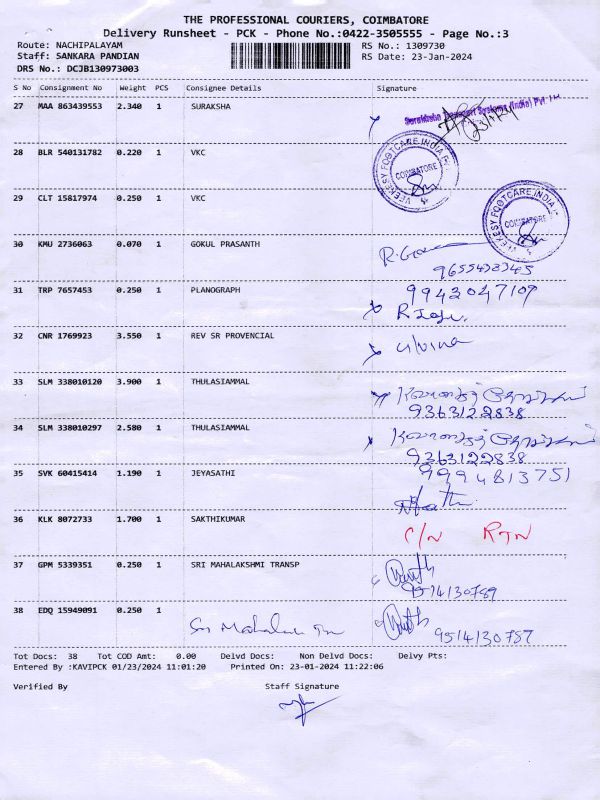 THE PROFESSIONAL COURIERS, COIMBATORE
Delivery Runsheet - PCK - Phone No.:0422-3505555 - Page No.:3
Route: NACHIPALAYAM RS No.: 1309730
Staff: SANKARA PANDIAN RS Date: 23-Jan-2024
DRS No.: DCJB130973003
S No Consignment No Weight PCS Consignee Details Signature
27 MAA 863439553 2.340 1 SURAKSHA
28 BLR 540131782 0.220 1 VKC
VEEKESY FOOTCARE INDIA
COIMBATORE
29 CLT 15817974 0.250 1 VKC
VEEKESY FOOTCARE INDIA
COIMBATORE
30 KMU 2736063 0.070 1 GOKUL PRASANTH
31 TRP 7657453 0.250 1 PLANOGRAPH 9943047107
32 CNR 1769923 3.550 1 REV SR PROVENCIAL
33 SLM 338010120 3.900 1 THULASIAMMAL
9363122838
34 SLM 338010297 2.580 1 THULASIAMMAL
9363122838
35 SVK 60415414 1.190 1 JEYASATHI 9994813751
36 KLK 8072733 1.700 1 SAKTHIKUMAR C/N RTN
37 GPM 5339351 0.250 1 SRI MAHALAKSHMI TRANSP
38 EDQ 15949091 0.250 1
9514130787
Tot Docs: 38 Tot COD Amt: 0.00 Delvd Docs: Non Delvd Docs: Delvy Pts:
Entered By :KAVIPCK 01/23/2024 11:01:20 Printed On: 23-01-2024 11:22:06
Verified By Staff Signature